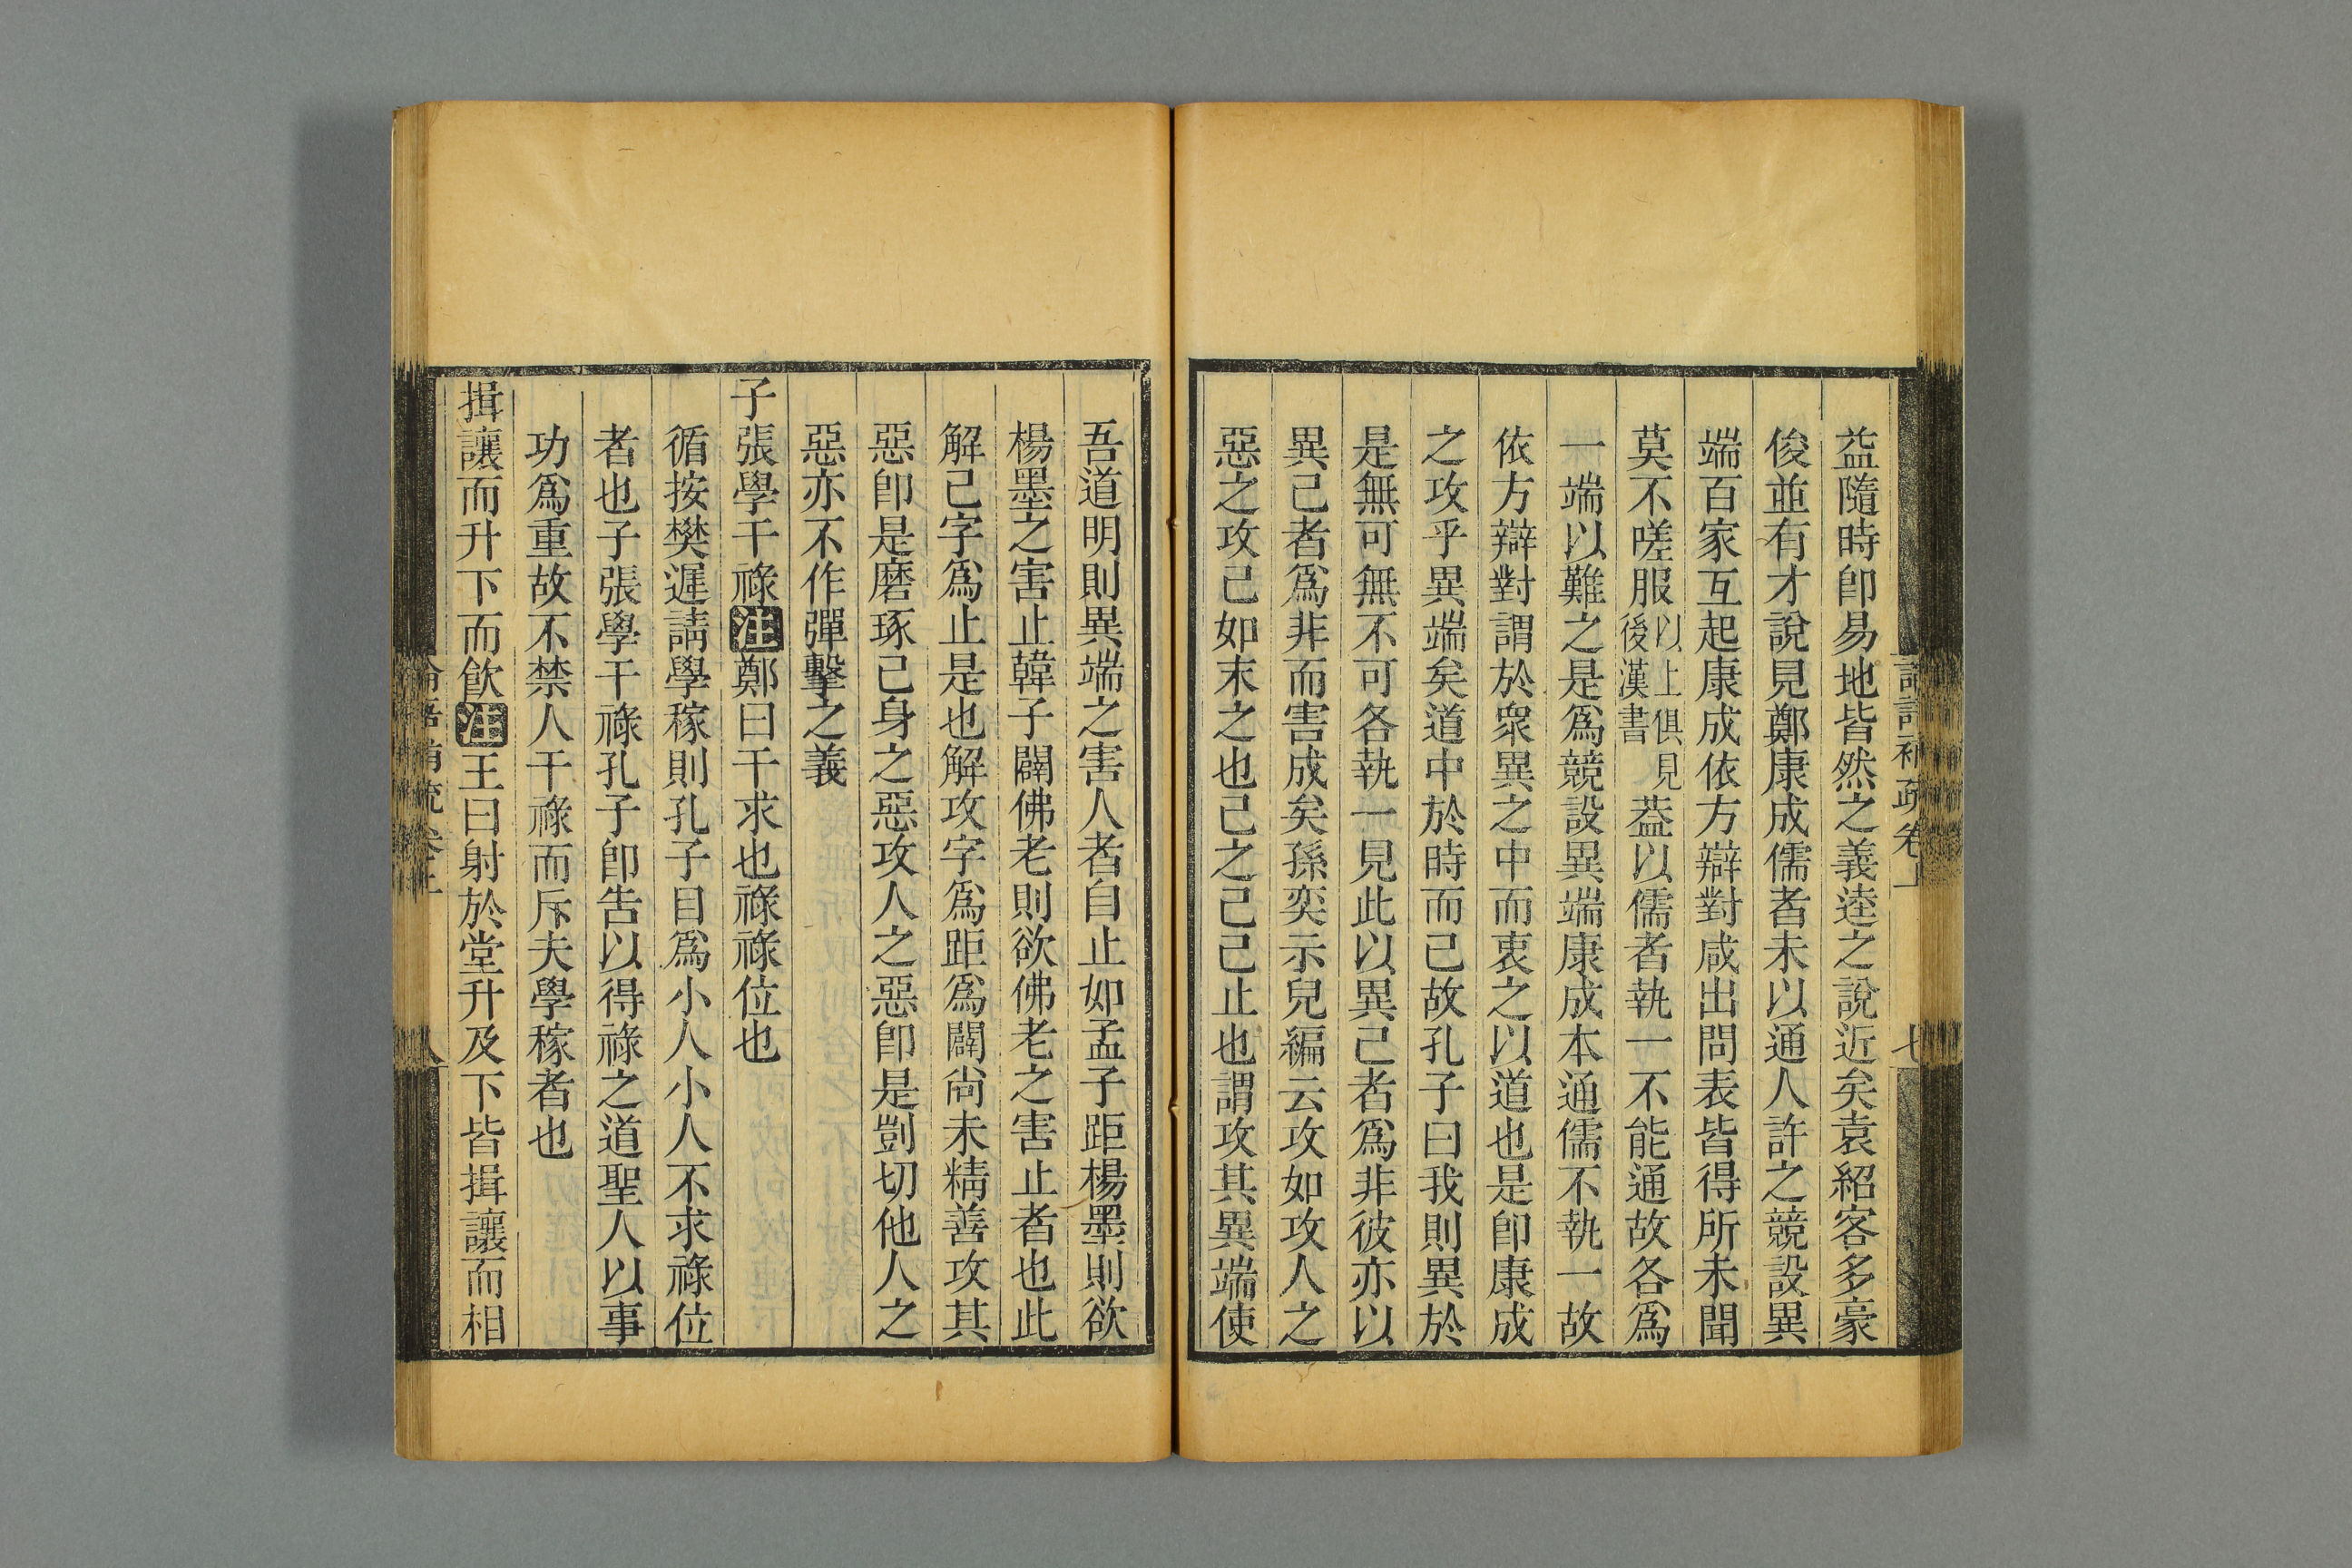 益隨時卽易地皆然之義逵之說近矣袁紹客多豪
俊並有才說見鄭康成儒者未以通人許之競設異
端百家互起康成依方辯對咸出問表皆得所未聞
莫不嗟服以上俱見後漢書葢以儒者執一不能通故各爲
一端以難之是爲競設異端康成本通儒不執一故
依方辯對謂於衆異之中而衷之以道也是卽康成
之攻乎異端矣道中於時而已故孔子曰我則異於
是無可無不可各執一見此以異己者爲非彼亦以
異己者爲非而害成矣孫奕示兒編云攻如攻人之
惡之攻已如末之也已之已已止也謂攻其異端使
吾道明則異端之害人者自止如孟子距楊墨則欲
楊墨之害止韓子闢佛老則欲佛老之害止者也此
解已字爲止是也解攻字爲距爲闢尙未精善攻其
惡卽是磨琢己身之惡攻人之惡卽是剴切他人之
惡亦不作彈擊之義
子張學干祿注鄭曰干求也祿祿位也
循按樊遲請學稼則孔子目爲小人小人不求祿位
者也子張學干祿孔子卽告以得祿之道聖人以事
功爲重故不禁人干祿而斥夫學稼者也
揖讓而升下而飮注王曰射於堂升及下皆揖讓而相